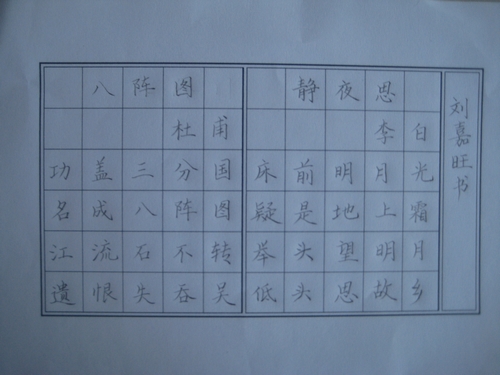 八阵图
杜甫
功盖三分国
名成八阵图
江流石不转
遗恨失吞吴
静夜思
李白
床前明月光
疑是地上霜
举头望明月
低头思故乡
刘嘉旺书